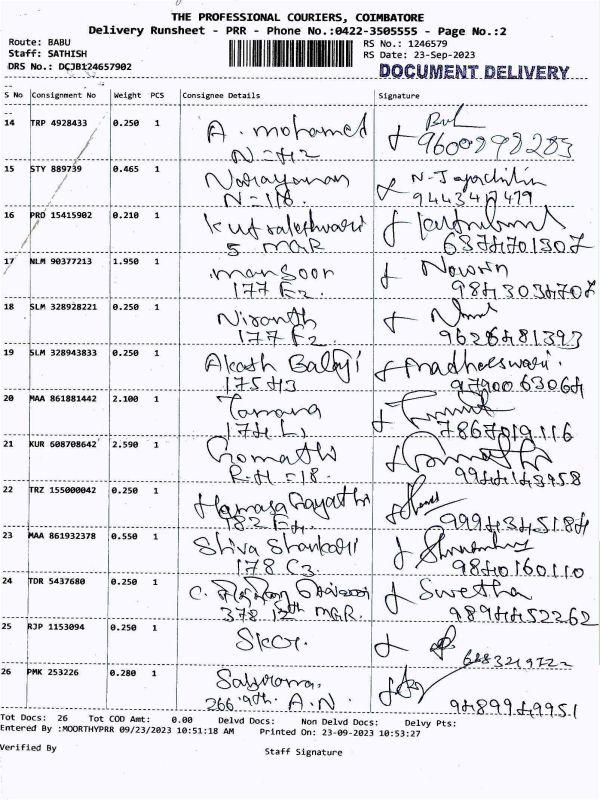 THE PROFESSIONAL COURIERS, COIMBATORE
Delivery Runsheet - PRR - Phone No.:0422-3505555 - Page No.:2
Route: BABU
RS No.: 1246579
Staff: SATHISH
RS Date: 23-Sep-2023
DRS No.: DCJB124657902
DOCUMENT DELIVERY
S No Consignment No Weight PCS Consignee Details Signature
14 TRP 4928433 0.250 1 A. mohamed
N=H2 9600898283
15 STY 889739 0.465 1 Narayanan N-Jayachitra
N=118. 9443417479
16 PRD 15415902 0.210 1
5 MGR 6374701307
17 NLM 90377213 1.950 1 mansoor
177 F2. 9843034707
18 SLM 328928221 0.250 1 Niranth
177 F2. 9626481393
19 SLM 328943833 0.250 1 Akash Balaji
175 H3 9790063064
20 MAA 861881442 2.100 1
174 L1 7867019116
21 KUR 608708642 2.590 1 Gomathi
R.H=18. 9944143958
22 TRZ 155000042 0.250 1
182 E4. 9994345184
23 MAA 861932378 0.550 1 Shiva Shankari
178 C3. 9840160110
24 TDR 5437680 0.250 1 C. Swetha
378 12th MGR. 9894452262
25 RJP 1153094 0.250 1
26 PMK 253226 0.280 1
266 9th A.N. 9489949951
Tot Docs: 26 Tot COD Amt: 0.00 Delvd Docs: Non Delvd Docs: Delvy Pts:
Entered By :MOORTHYPRR 09/23/2023 10:51:18 AM Printed On: 23-09-2023 10:53:27
Verified By
Staff Signature